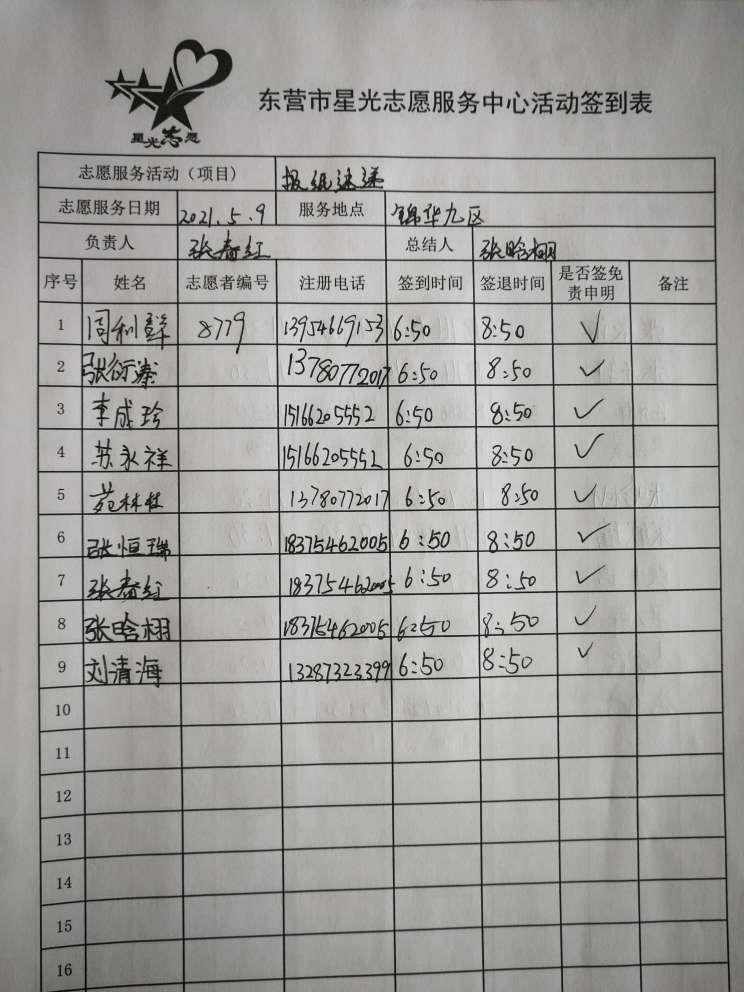 星光志愿
东营市星光志愿服务中心活动签到表
志愿服务活动（项目） 报纸速递
志愿服务日期 2021.5.9 服务地点 锦华九区
负责人 张春红 总结人 张晗栩
序号 姓名 志愿者编号 注册电话 签到时间 签退时间 是否签免责申明 备注
1 周利群 8779 13954669153 6:50 8:50 ✓
2 张衍溱 13780772017 6:50 8:50 ✓
3 李成玲 15166205552 6:50 8:50 ✓
4 苏永祥 15166205552 6:50 8:50 ✓
5 苑林桂 13780772017 6:50 8:50 ✓
6 张恒瑞 18375462005 6:50 8:50 ✓
7 张春红 18375462005 6:50 8:50 ✓
8 张晗栩 18375462005 6:50 8:50 ✓
9 刘清海 13287323399 6:50 8:50 ✓
10
11
12
13
14
15
16